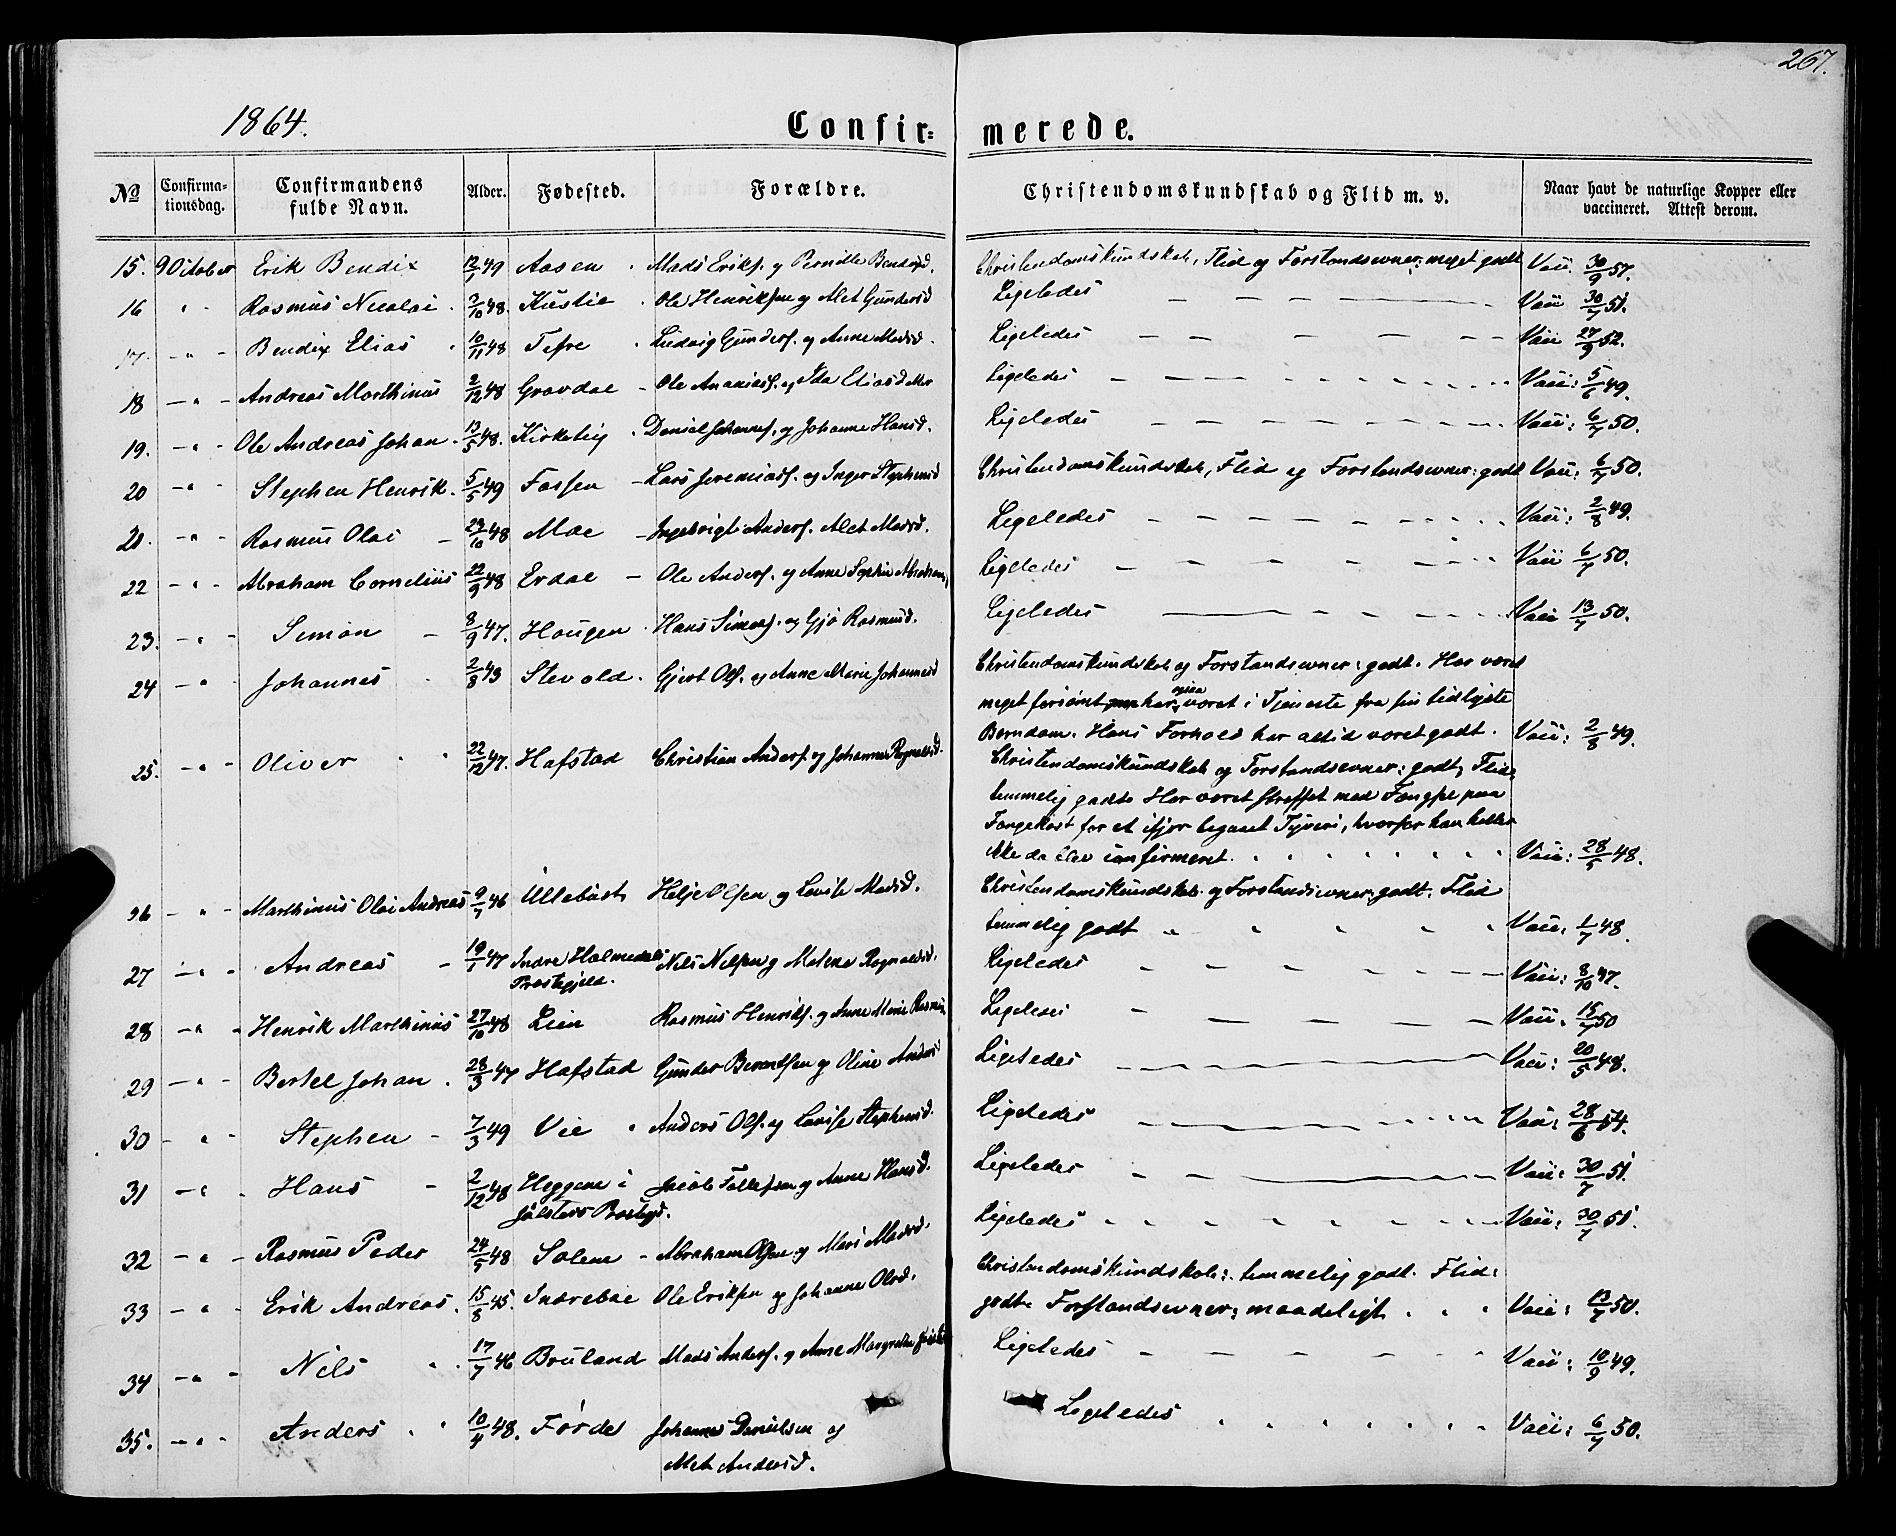 267.
1864.
Confir= merede.
No Confirma-tionsdag. Confirmandens fulde Navn. Alder. Fødested. Forældre. Christendomskundskab og Flid m. v. Naar havt de naturlige Kopper eller vaccineret. Attest derom.
15. 9 October Erik Bendix 12/7 49 Aasen Mads Eriks. og Pernille Bendixd. Christendomskundskab, Flid og Forstandsevner: meget godt Vacc. 30/9 57.
16 " Rasmus Nicolai 3/10 48. Kustie Ole Henriksen og Alet Gundersd Ligeledes Vacc 30/7 51.
17. " Bendix Elias 10/11 48 Tefre Ludvig Gunders. og Anne Madsd. Ligeledes Vacc 27/9 52.
18 " Andreas Marthinus 2/12 48 Gravdal Ole Ananias. og Ida Eliasd Ligeledes Vacc: 5/6 49.
19. " Ole Andreas Johan 13/5 48. Kirkebig Daniel Johannes. og Johanne Hansd. Ligeledes Vacc: 6/7 50.
20 " Stephen Henrik 5/5 49 Fossen Lars Jeremias. og Inger Stephensd Christendomskundskab, Flid og Forstandsevner: godt Vacc: 6/7 50.
21. " Rasmus Olai 23/10 48 Moe Ingebrigt Anders. Alet Madsd. Ligeledes Vacc: 2/8 49.
22 " Abraham Cornelius 22/9 48 Erdal Ole Anders. og Anne Sophie Abrahams Ligeledes Vacc 6/7 50.
23. " Simon 8/9 47. Haugen Hans Simons. og Gjø Rasmusd. Ligeledes Vacc 13/7 50.
24 " Johannes 2/8 43 Stevold Gjert Ols. og Anne Marie Johannesd Christendomskundskab og Forstandsevner: godt. Har været
meget forsømt har ogsaa været i Tjeneste fra sin tidligste
Barndom. Hans Forhold har altid været godt. Vacc: 2/8 49.
25. " Oliver 22/12 47. Hafstad Christian Anders. og Johanne Rognaldsd. Christendomskundskab og Forstandsevner: godt, Flid:
temmelig godt. Har været straffet med Fængsel paa
Fangekost for et ifjor begaaet Tyveri, hvorfor han heller
ikke da blev confirmeret. Vacc: 28/5 48.
26 " Marthinus Olai Andreas 9/7 46 Ullebust Helje Olsen og Lovise Madsd. Christendomskundskab og Forstandsevner: godt. Flid
temmelig godt Vacc: 1/7 48.
27 " Andreas 19/1 47 Indre Holmedals Præstegjeld. Nils Nilsen og Malene Rognaldsd. Ligeledes Vacc: 8/10 47.
28 " Henrik Marthinus 27/10 48 Lien Rasmus Henriks. og Anne Marie Rasmus Ligeledes Vacc. 15/7 50
29 " Bertel Johan 28/3 47 Hafstad Gunder Berentsen og Oline Andersd Ligeledes Vacc: 20/5 48.
30 " Stephen 7/3 49 Vie Anders Ols. og Lovise Stephensd. Ligeledes Vacc: 28/6 54.
31 " Hans 2/12 48 Heggene i Jølsters Præstegd. Jacob Tollefsen og Anne Hansd. Ligeledes Vacc: 30/7 51.
32 " Rasmus Peder 24/5 48 Solem Abraham Olsen og Mari Madsd. Ligeledes Vacc: 30/7 51.
33 " Erik Andreas 15/8 45. Indrebøe Ole Eriksen og Johanne Olsd. Christendomskundskab: temmelig godt. Flid:
godt. Forstandsevner: maadeligt Vacc: 13/7 50.
34 " Nils 17/7 46 Bruland Mads Anders. og Anne Margrethe Ligeledes Vacc: 10/9 49.
35. " Anders 10/4 48. Førde Johannes Danielsen og Alet Andersd. Ligeledes Vacc: 6/7 50.